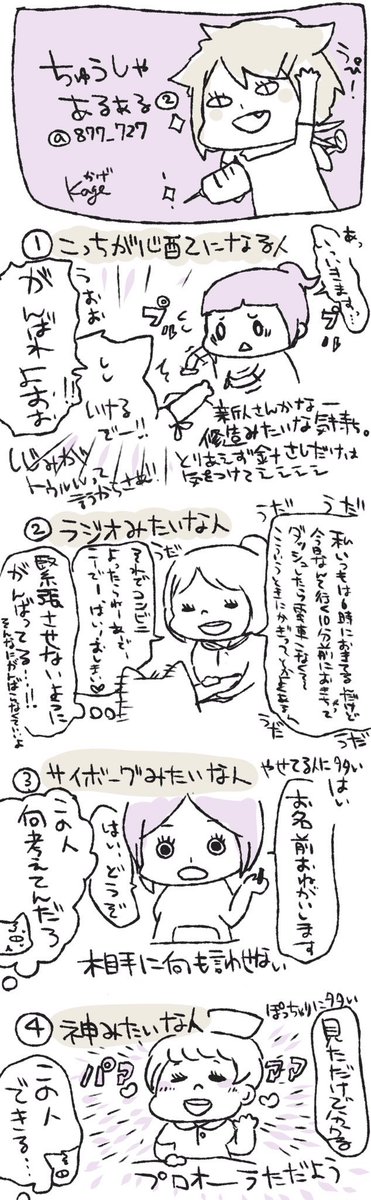 ちゅうしゃ
あるある②
@877_727
かげ
Kage
うぴ!
① こっちが心配になる人
あっ
いいきます…
プル
プル
うおお
がんばれよおお!!
しし
いける
でー!!
しじみわ
トゥルルって
言うからさぁ!!
新人さんかなー
修造みたいな気持ち。
とりあえず針さしだけは
気をつけてェェェェ
② ラジオみたいな人
うだ
うだ
私いつもは6時におきてるんだけど
今日なんと行く10分前におきちゃって
ダッシュしたら電車こなく〜
こういうときにかぎって
うだ
うだ
うだ
それでコンビニ
よったられ、
緊張させないように
がんばってる…!!
そんなにがんばんなくていいよ
③ サイボーグみたいな人
やせてる人に多い
はい
お名前おねがいします
はい、どうぞ
この人
何考えてんだろ
相手に何も言わせない
④ 神みたいな人
ぽっちゃりに多い
見ただけで分かる
パァ
アァ
この人
できる…
プロオーラただよう